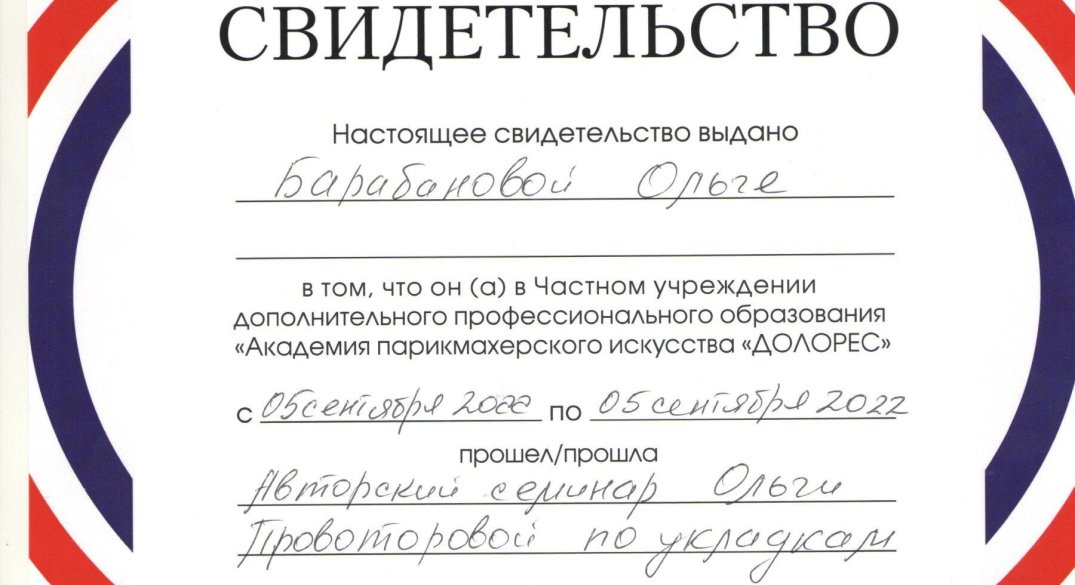 СВИДЕТЕЛЬСТВО
Настоящее свидетельство выдано
Барабановой Ольге
в том, что он (а) в Частном учреждении
дополнительного профессионального образования
«Академия парикмахерского искусства «ДОЛОРЕС»
с 05 сентября 2022 по 05 сентября 2022
прошел/прошла
Авторский семинар Ольги
Провоторовой по укладкам